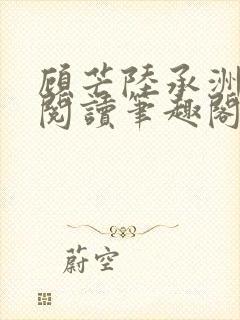 顾芒陸承洲
閱讀筆趣閣
蔚空